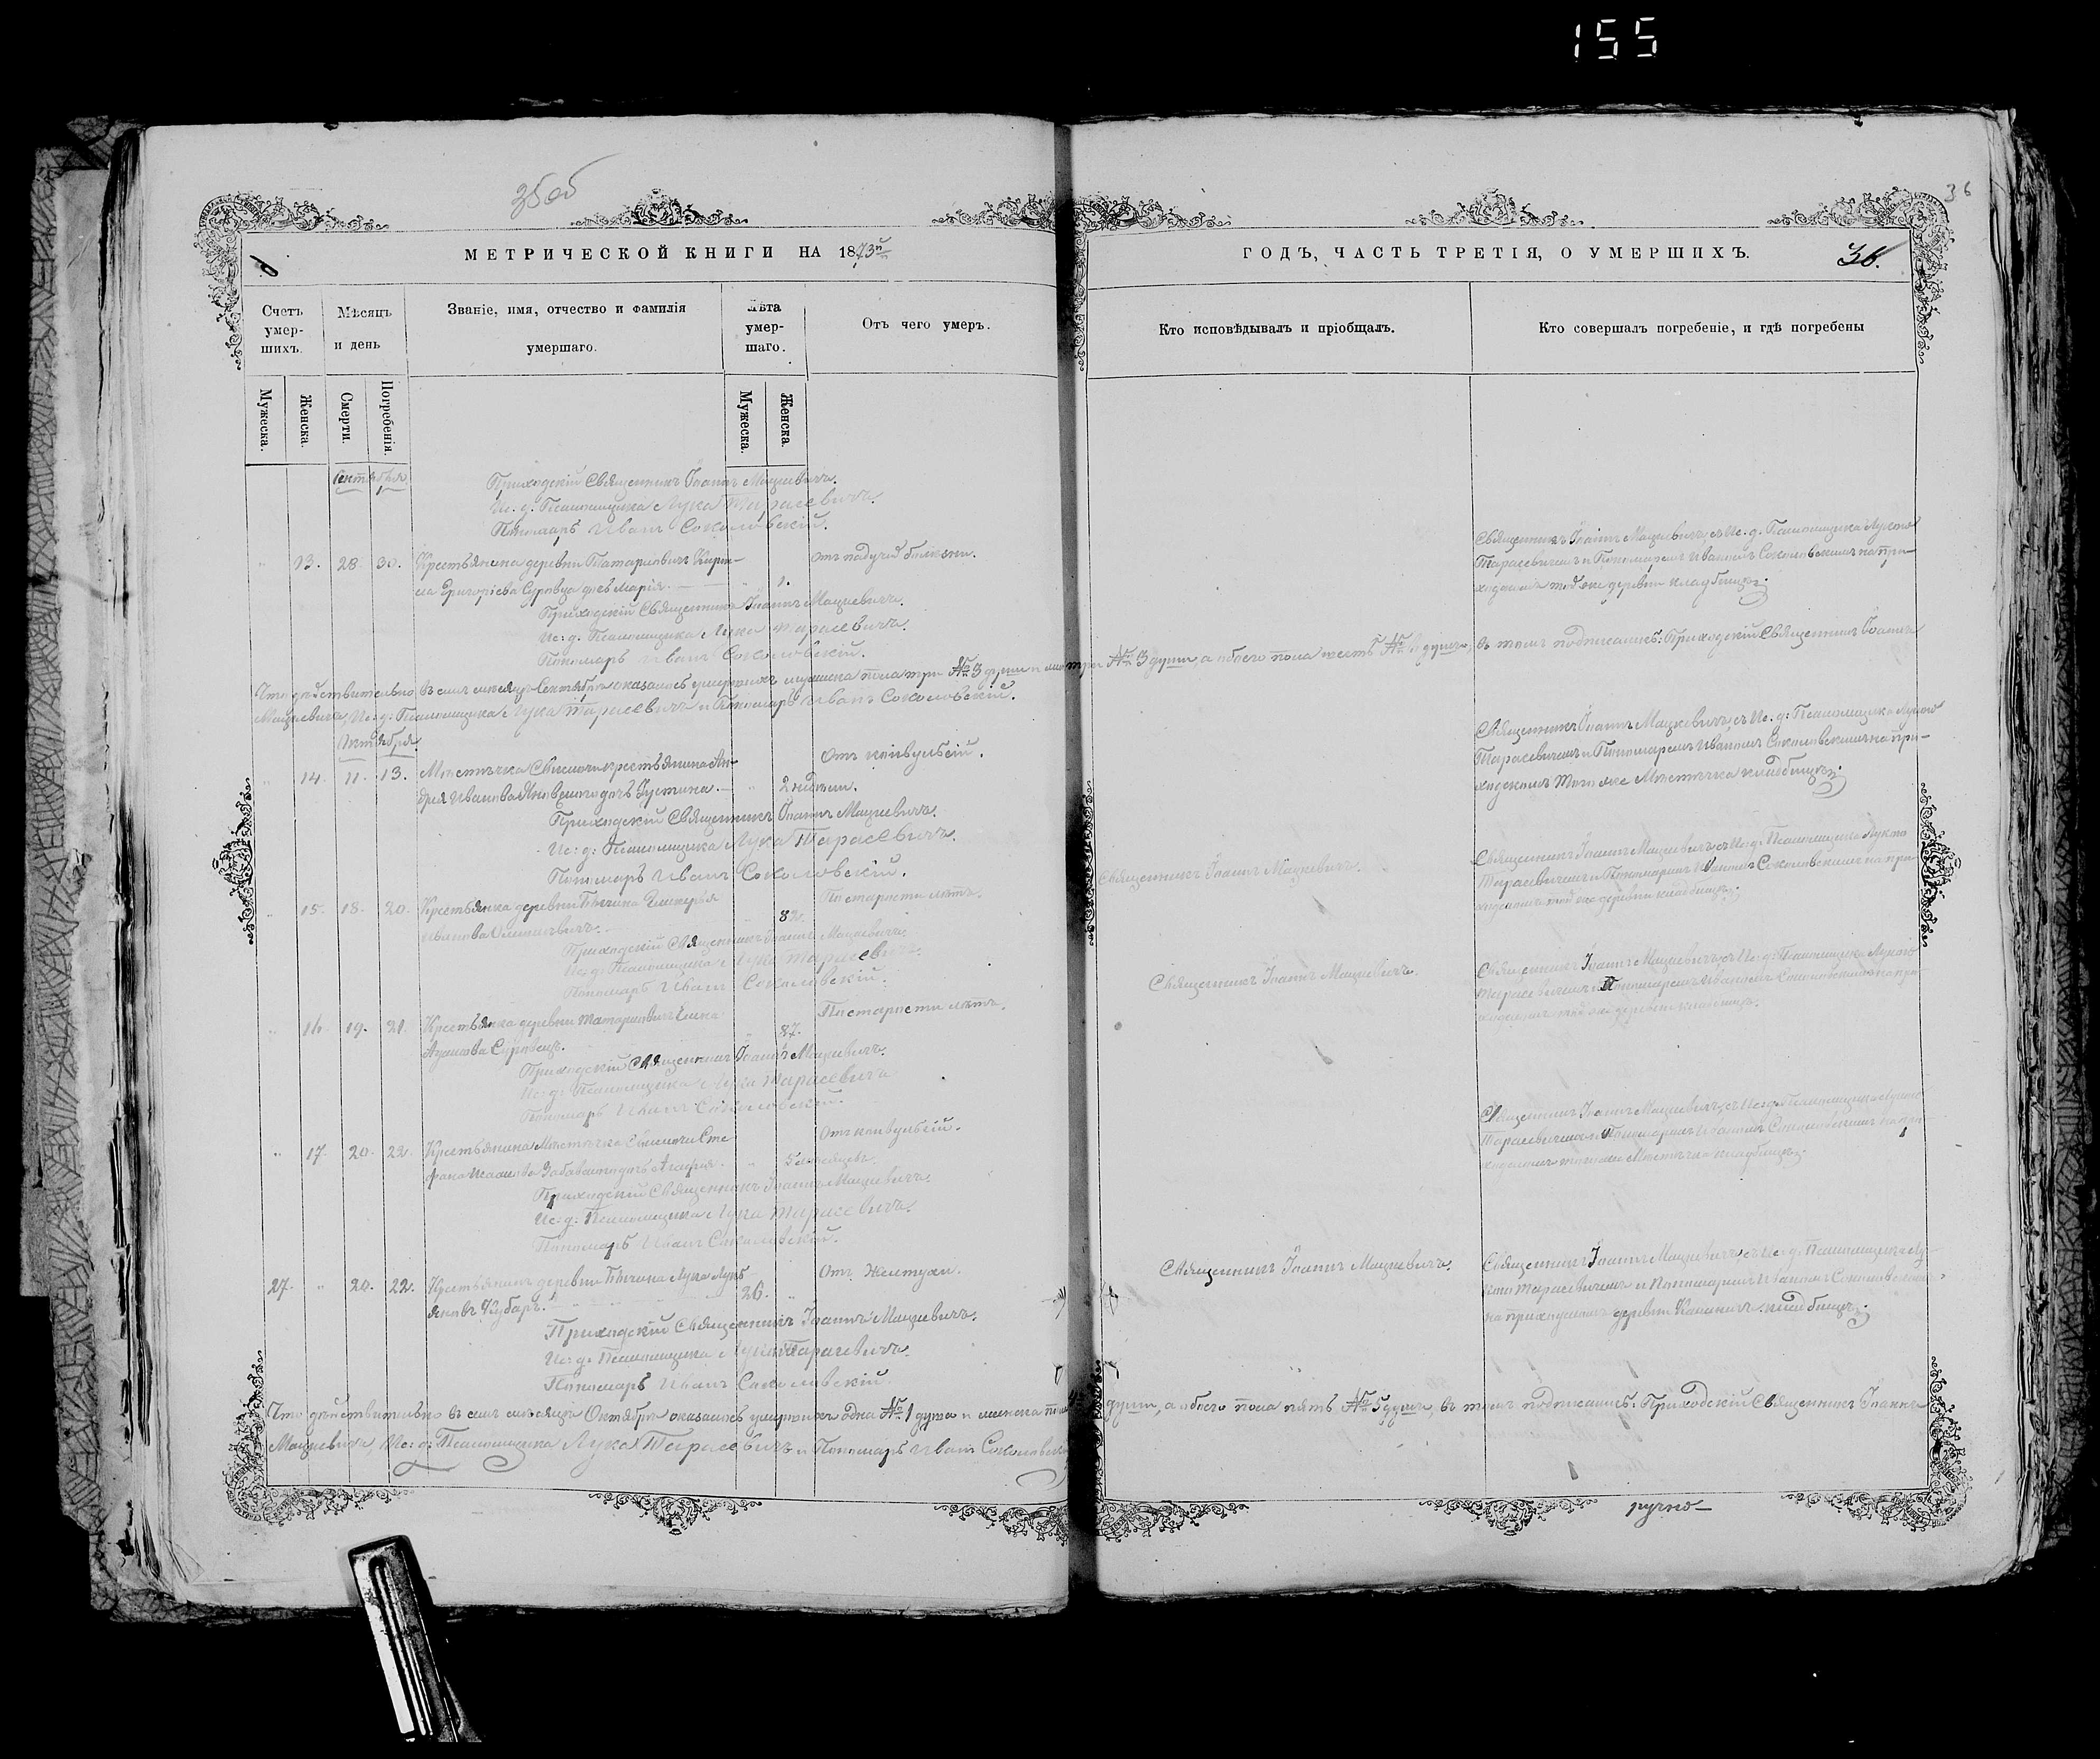 155
35 об
36
МЕТРИЧЕСКОЙ КНИГИ НА 1873й
ГОДЪ, ЧАСТЬ ТРЕТІЯ, О УМЕРШИХЪ.
36.
Счетъ умер-шихъ.
Мѣсяцъ и день
Званіе, имя, отчество и фамилія умершаго.
Лѣта умер-шаго.
Отъ чего умеръ.
Кто исповѣдывалъ и пріобщалъ.
Кто совершалъ погребеніе, и гдѣ погребены
Мужеска.
Женска.
Смерти.
Погребенія.
Мужеска.
Женска.
Сентября
Приходскій Священникъ Іоаннъ Мацкевичъ.
Ис. д. Псаломщика Лука Тарасевичъ.
Пономарь Иванъ Соколовскій.
13. 28. 30. Крестьянина деревни Татариновичъ
Григоріева дочь Марія. 1.
отъ падучей болезни.
Священникъ Іоаннъ Мацкевичъ съ Ис. д. Псаломщика Лукою
Тарасевичемъ и Пономаремъ Иваномъ Соколовскимъ на при-
ходскомъ той же деревни кладбищѣ.
Приходскій Священникъ Іоаннъ Мацкевичъ.
Ис. д. Псаломщика Лука Тарасевичъ.
Пономарь Иванъ Соколовскій.
Что дѣйствительно въ семъ мѣсяцѣ Сентябрѣ оказалось умершихъ мужеска пола три № 3 души и женска три № 3 души, а обоего пола шесть № 6 душъ, въ томъ подписались: Приходскій Священникъ Іоаннъ
Мацкевичъ, Ис. д. Псаломщика Лука Тарасевичъ и Пономарь Иванъ Соколовскій.
Октября
14. 11. 13. Мѣстечка Свислочи крестьянина Ан-
дрея Иванова дочь Іустина. 2 недели.
Отъ конвульсій.
Священникъ Іоаннъ Мацкевичъ съ Ис. д. Псаломщика Лукою
Тарасевичемъ и Пономаремъ Иваномъ Соколовскимъ на при-
ходскомъ того же Мѣстечка кладбищѣ.
Приходскій Священникъ Іоаннъ Мацкевичъ.
Ис. д. Псаломщика Лука Тарасевичъ.
Пономарь Иванъ Соколовскій.
15. 18. 20. Крестьянка деревни
Иванова 82.
По старости лѣтъ.
Священникъ Іоаннъ Мацкевичъ.
Священникъ Іоаннъ Мацкевичъ съ Ис. д. Псаломщика Лукою
Тарасевичемъ и Пономаремъ Иваномъ Соколовскимъ на при-
ходскомъ той же деревни кладбищѣ.
Приходскій Священникъ Іоаннъ Мацкевичъ.
Ис. д. Псаломщика Лука Тарасевичъ.
Пономарь Иванъ Соколовскій.
16. 19. 21. Крестьянка деревни Татариновичъ Елена
87.
По старости лѣтъ.
Священникъ Іоаннъ Мацкевичъ.
Священникъ Іоаннъ Мацкевичъ съ Ис. д. Псаломщика Лукою
Тарасевичемъ и Пономаремъ Иваномъ Соколовскимъ на при-
ходскомъ той же деревни кладбищѣ.
Приходскій Священникъ Іоаннъ Мацкевичъ.
Ис. д. Псаломщика Лука Тарасевичъ
Пономарь Иванъ Соколовскій.
17. 20. 22. Крестьянина Мѣстечка Свислочи Сте-
фана дочь Агафія. 5 мѣсяцевъ.
Отъ конвульсій.
Священникъ Іоаннъ Мацкевичъ съ Ис. д. Псаломщика Лукою
Тарасевичемъ и Пономаремъ Иваномъ Соколовскимъ на при
ходскомъ того же Мѣстечка кладбищѣ.
Приходскій Священникъ Іоаннъ Мацкевичъ.
Ис. д. Псаломщика Лука Тарасевичъ.
Пономарь Иванъ Соколовскій.
27. 20. 22. Крестьянинъ деревни Лука Лукь-
яновъ Кубаръ. 26.
Отъ Желтухи.
Священникъ Іоаннъ Мацкевичъ.
Священникъ Іоаннъ Мацкевичъ съ Ис. д. Псаломщика Лу-
кою Тарасевичемъ и Пономаремъ Иваномъ Соколовскимъ
на приходскомъ деревни кладбищѣ.
Приходскій Священникъ Іоаннъ Мацкевичъ.
Ис. д. Псаломщика Лука Тарасевичъ.
Пономарь Иванъ Соколовскій
Что дѣйствительно въ семъ мѣсяцѣ Октябрѣ оказалось умершихъ одна № 1 душа и женска души, а обоего пола пять № 5 душъ, въ томъ подписались: Приходскій Священникъ Іоаннъ
Мацкевичъ, Ис. д. Псаломщика Лука Тарасевичъ и Пономарь Иванъ Соколовскій